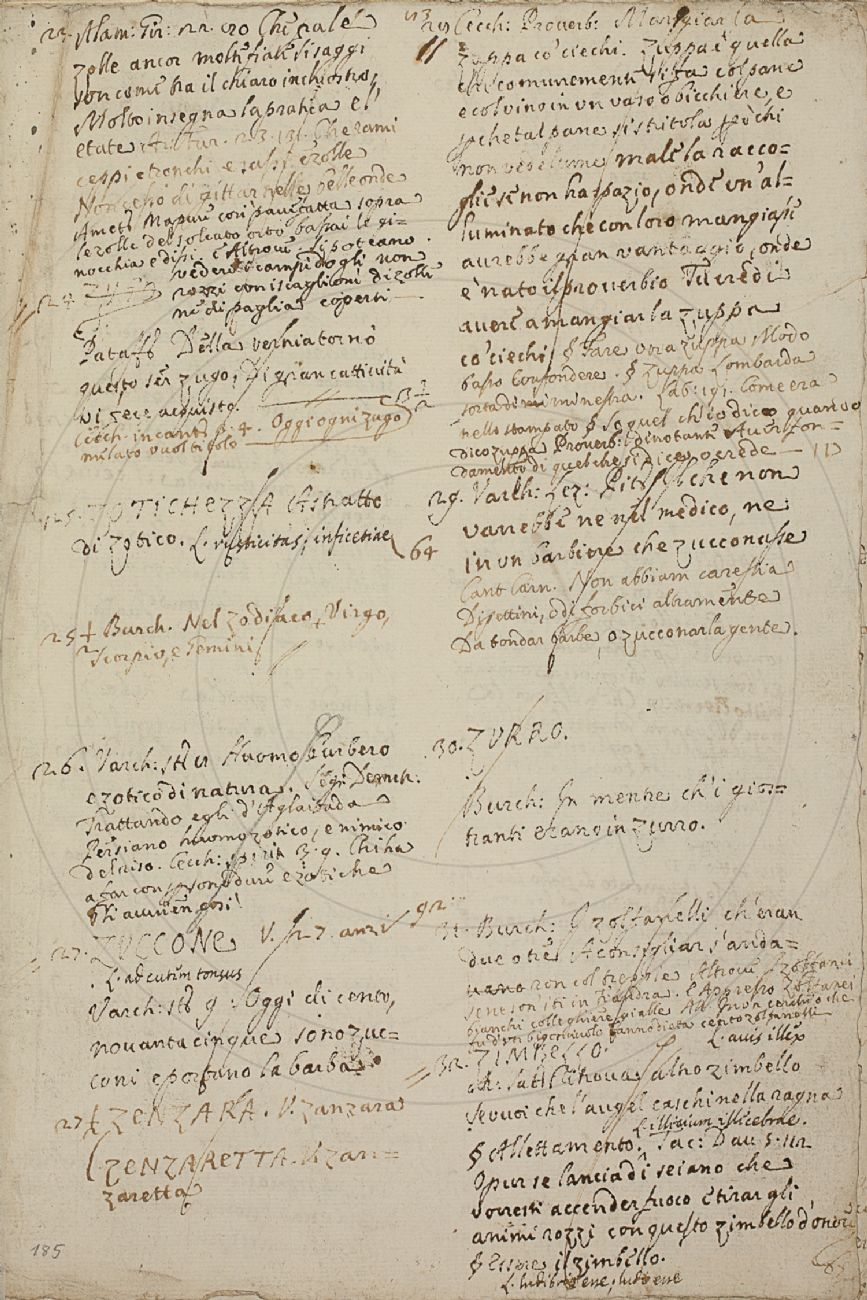 23. Alam: Gir: 22. 120 Che nale
zolle ancor molte fiate si saggi
son come tra il chiaro inchiostro,
Molto insegna la pratica e l'
etate 23. 131. Che rami
ceppi e tronchi e sassi e zolle
Non cessò di gittar nelle belle onde
Amet: con pancatta sopra
le zolle del solcato orto bassai le gi-
nocchia e dissi. E Altrove. Si poteano
vedere i campidogli non
24. rozzi con iscaglioni di zolle
ne di paglia coperti
Pataff. Della vernia tornò
questo ser zugo, Di gran cattività
vi fece acquisto.
Cecch: incant: 2. 4. Oggi ogni zugo
melato vuol
25. ZOTICHEZZA Astratto
di zotico. L. rusticitas, inficetiae
64
25 Burch. Nel Zodiaco, Virgo,
Scorpio, e Gemini
26. Varch: st: 12 Huomo burbero
e zotico di natura. Seg: Demetr:
Trattando egli d'
Persiano huomo zotico, e nimico
del riso. Cecch: spirit. 3. 9. Chi ha
a far con persone dure e zotiche
gli avvien così!
27. ZUCCONE V. 27. anzi 92
L. ad cutim tonsus
Varch: sto 9. Oggi di cento,
novanta cinque sono zuc=
coni e portano la barba
27 ZENZARA. V. zanzara
ZENZARETTA. V. zan=
zaretta
185
Cecch: Proverb: Mangiar la
zuppa co' ciechi. Zuppa è quella
che comunemente si fa col pane
e col vino in un vaso o bicchiere, e
pchè tal pane si tritola, pò chi
non vede lume male la racco=
glie se non ha spazio, onde un al=
luminato che con loro mangiasse
avrebbe gran vantaggio, onde
è nato il proverbio Tu credi
avere a mangiar la zuppa
co' ciechi. § Fare una zuppa Modo
basso Confondere. § Zuppa Lombarda
sorta di minestra. Lab: 191. Come era
nello stampato § So quel ch'io dico quando
dico zuppa Proverb: dinotante Aver fon=
damento di quel che si dice o crede
29. Varch: Lez: Pitt: che non
varrebbe ne nel medico, ne
in un barbiere che zucconasse
Cant: Carn. Non abbiam carestia
Di pettini, o di forbici altramente
Da tondar barbe, o zucconar la gente.
30. ZURRO.
Burch: In mentre ch'i gio=
stranti erano in zurro.
31. Burch: I zolfanelli ch'eran
due o tre A consigliar s'anda=
vano con col treppie Altrove
sene son iti in
bianchi
fanno dieta cento zolfanelli
32. ZIMBELLO. L. avis illex
Truova altro zimbello
se vuoi che l'augel caschi nella ragna
L. illicium illecebrae.
§ Allettamento. Tac: Dav: 5. 112
Opur se lanciadi seiano che
vorresti accender fuoco e tirar gli
animi rozzi con questo zimbello d'onore
§ Essere il zimbello.
L. ludibrio esse, ludo esse